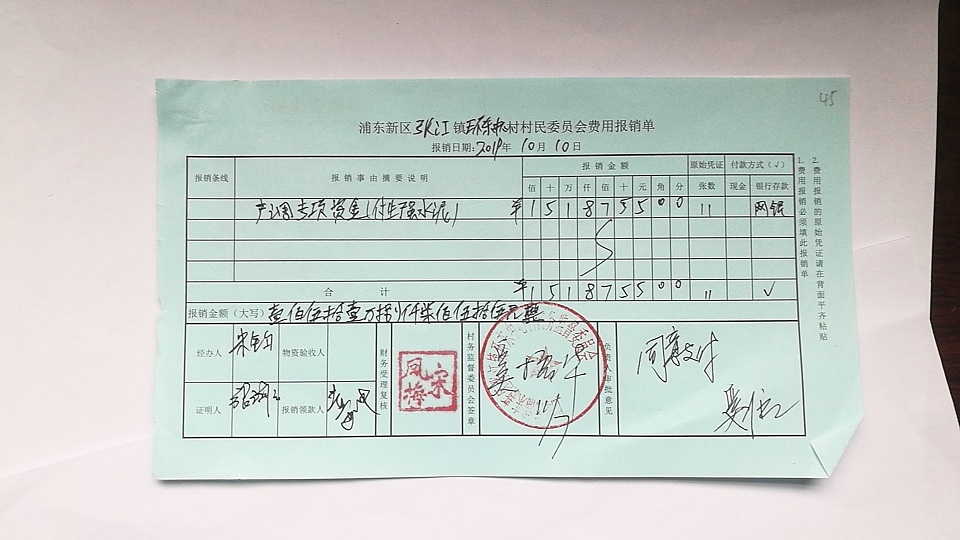 45
浦东新区张江镇环东村村民委员会费用报销单
报销日期:2019年10月10日
报销条线 报销事由摘要说明 报销金额 原始凭证 付款方式(√)
佰 十 万 仟 佰 十 元 角 分 张数 现金 银行存款
专项资金(付 水泥) ¥ 1 5 1 8 7 5 5 0 0 11 网银
合计 ¥ 1 5 1 8 7 5 5 0 0 11 √
报销金额(大写) 壹佰伍拾壹万捌仟柒佰伍拾伍元
经办人 物资验收人
证明人 报销领款人
财务受理复核
宋凤梅
村务监督委员会签章
负责人审批意见
同意支付
1.费用报销必须填此报销单
2.费用报销的原始凭证请在背面平齐粘贴